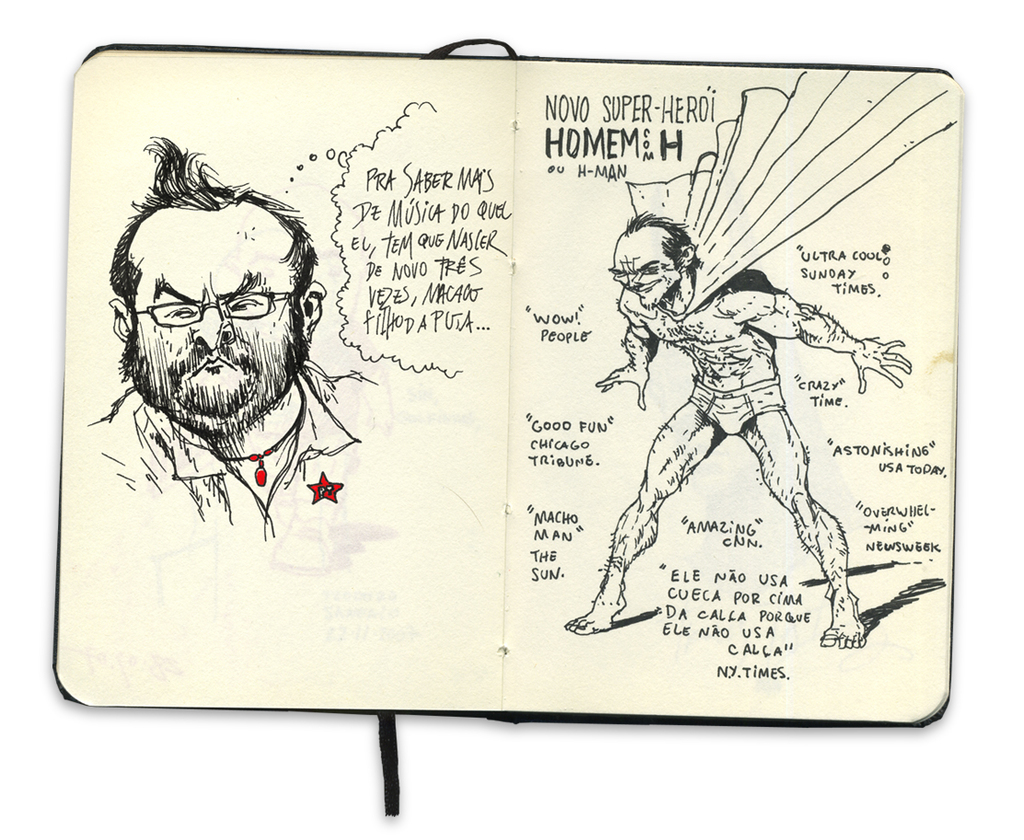 PRA SABER MAIS
DE MÚSICA DO QUE
EU, TEM QUE NASCER
DE NOVO TRÊS
VEZES, MACACO
FILHO DA PUTA...
NOVO SUPER-HERÓI
HOMEM COM H
OU H-MAN
"ULTRA COOL"
SUNDAY
TIMES.
"WOW!"
PEOPLE
"CRAZY"
TIME.
"GOOD FUN"
CHICAGO
TRIBUNE.
"ASTONISHING"
USA TODAY.
"MACHO
MAN"
THE
SUN.
"AMAZING"
CNN.
"OVERWHEL-
MING"
NEWSWEEK
"ELE NÃO USA
CUECA POR CIMA
DA CALÇA PORQUE
ELE NÃO USA
CALÇA"
N.Y. TIMES.